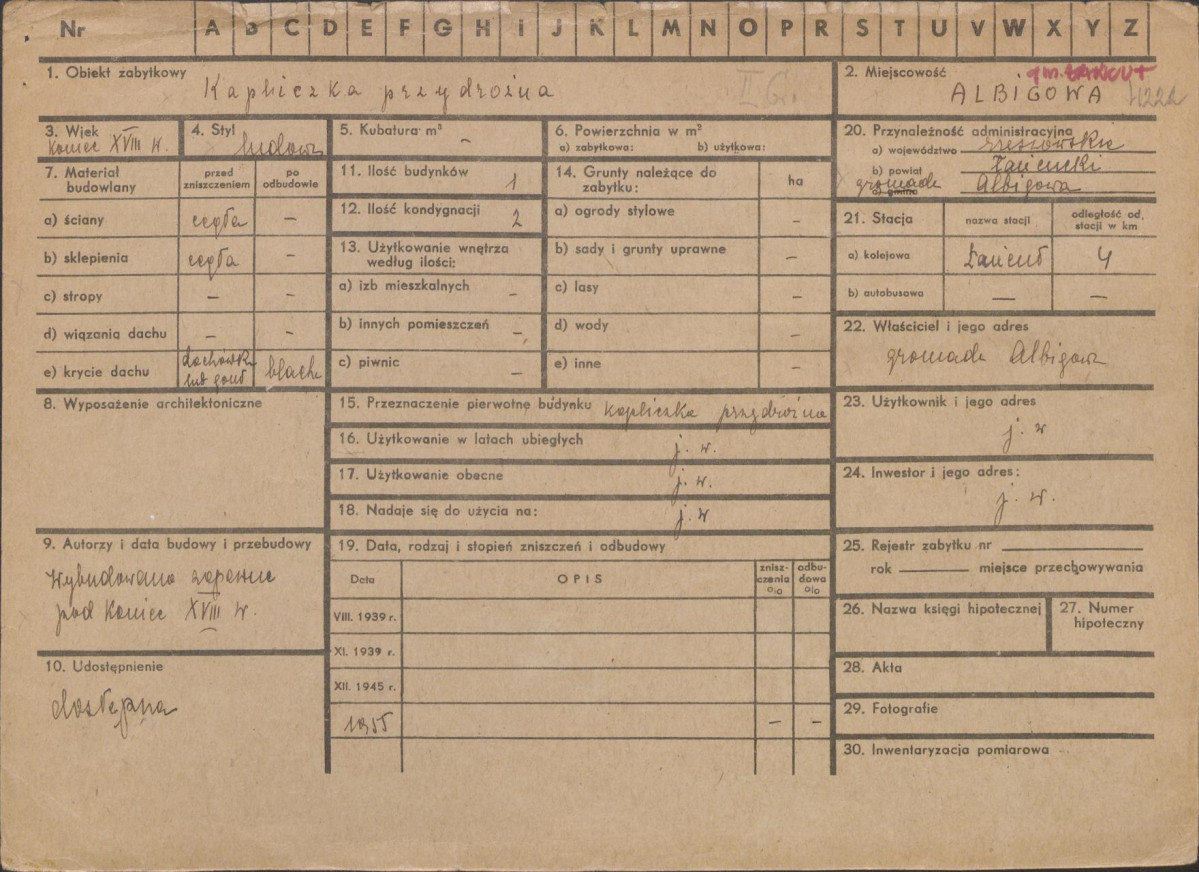 Nr A B C D E F G H I J K L M N O P R S T U V W X Y Z
1. Obiekt zabytkowy
Kapliczka przydrożna II Gr.
2. Miejscowość
gm. ŁAŃCUT
ALBIGOWA
3. Wiek
koniec XVIII w.
4. Styl
ludowy
5. Kubatura m³
–
6. Powierzchnia w m²
a) zabytkowa: b) użytkowa:
7. Materiał budowlany
przed zniszczeniem
po odbudowie
a) ściany cegła –
b) sklepienia cegła –
c) stropy – –
d) wiązania dachu – –
e) krycie dachu dachówka lub gont blacha
11. Ilość budynków 1
12. Ilość kondygnacji 2
13. Użytkowanie wnętrza
według ilości:
a) izb mieszkalnych –
b) innych pomieszczeń –
c) piwnic –
14. Grunty należące do
zabytku: ha
a) ogrody stylowe –
b) sady i grunty uprawne –
c) lasy –
d) wody –
e) inne –
20. Przynależność administracyjna
a) województwo rzeszowskie
b) powiat łańcucki
gromada c) gmina Albigowa
21. Stacja nazwa stacji odległość od.
stacji w km
a) kolejowa Łańcut 4
b) autobusowa – –
22. Właściciel i jego adres
gromada Albigowa
8. Wyposażenie architektoniczne
15. Przeznaczenie pierwotne budynku kapliczka przydrożna
16. Użytkowanie w latach ubiegłych j. w.
17. Użytkowanie obecne j. w.
18. Nadaje się do użycia na: j. w
23. Użytkownik i jego adres
j. w
24. Inwestor i jego adres:
j. w.
9. Autorzy i data budowy i przebudowy
Wybudowano zapewne
pod koniec XVIII w.
10. Udostępnienie
dostępna
19. Data, rodzaj i stopień zniszczeń i odbudowy
Data OPIS znisz-czenia % odbu-dowa %
VIII. 1939 r.
XI. 1939 r.
XII. 1945 r.
1955 – –
25. Rejestr zabytku nr
rok miejsce przechowywania
26. Nazwa księgi hipotecznej
27. Numer
hipoteczny
28. Akta
29. Fotografie
30. Inwentaryzacja pomiarowa